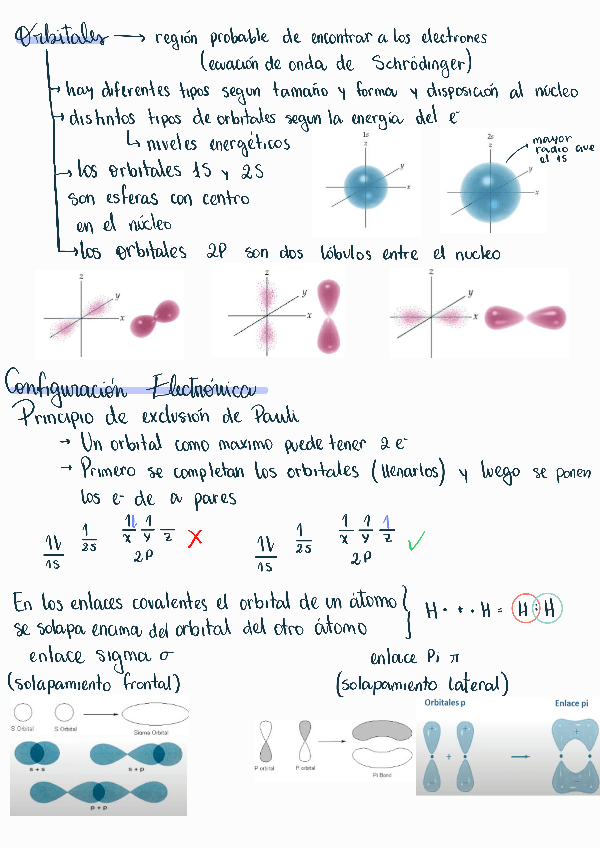 Orbitales → región probable de encontrar a los electrones
(ecuación de onda de Schrödinger)
→ hay diferentes tipos segun tamaño y forma y disposición al núcleo
→ distintos tipos de orbitales segun la energía del e⁻
↳ niveles energéticos
→ los orbitales 1S y 2S
son esferas con centro
en el núcleo
1s
z
y
x
2s
z
y
x
mayor
radio que
el 1S
→ los orbitales 2P son dos lóbulos entre el nucleo
z
y
x
z
y
x
z
y
x
Configuración Electrónica
Principio de exclusión de Pauli
→ Un orbital como maximo puede tener 2 e⁻
→ Primero se completan los orbitales (llenarlos) y luego se ponen
los e⁻ de a pares
1S 2S x y z 2P X
1S 2S x y z 2P ✓
En los enlaces covalentes el orbital de un átomo
se solapa encima del orbital del otro átomo
H· + ·H = H:H
enlace sigma σ
(solapamiento frontal)
enlace Pi π
(solapamiento lateral)
S Orbital S Orbital Sigma Orbital
s + s s + p
p + p
P orbital P orbital Pi Bond
Orbitales p Enlace pi
+ + + +
- - -